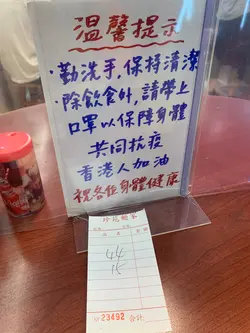 溫馨提示
・勤洗手,保持清潔
・除飲食外,請帶上
口罩以保障身體
共同抗疫
香港人加油
祝各位身體健康
44
15
23492 合計